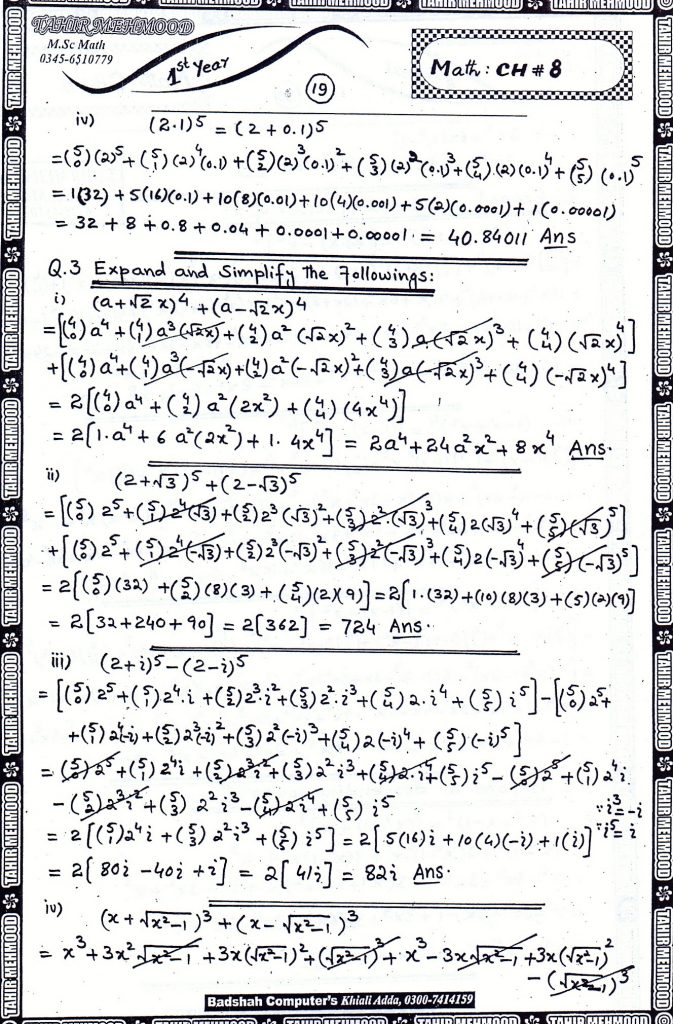 TAHIR MEHMOOD
M.Sc Math
0345-6510779
1st Year
19
Math: CH # 8
iv) (2.1)^5 = (2 + 0.1)^5
= (5 0)(2)^5 + (5 1)(2)^4(0.1) + (5 2)(2)^3(0.1)^2 + (5 3)(2)^2(0.1)^3 + (5 4)(2)(0.1)^4 + (5 5)(0.1)^5
= 1(32) + 5(16)(0.1) + 10(8)(0.01) + 10(4)(0.001) + 5(2)(0.0001) + 1(0.00001)
= 32 + 8 + 0.8 + 0.04 + 0.0001 + 0.00001 = 40.84011 Ans
Q.3 Expand and Simplify the Followings:
i) (a+√2 x)^4 + (a-√2x)^4
= [(4 0)a^4 + (4 1)a^3(√2x) + (4 2)a^2(√2x)^2 + (4 3)a(√2x)^3 + (4 4)(√2x)^4]
+ [(4 0)a^4 + (4 1)a^3(-√2x) + (4 2)a^2(-√2x)^2 + (4 3)a(-√2x)^3 + (4 4)(-√2x)^4]
= 2[(4 0)a^4 + (4 2)a^2(2x^2) + (4 4)(4x^4)]
= 2[1.a^4 + 6a^2(2x^2) + 1.4x^4] = 2a^4 + 24a^2x^2 + 8x^4 Ans.
ii) (2+√3)^5 + (2-√3)^5
= [(5 0)2^5 + (5 1)2^4(√3) + (5 2)2^3(√3)^2 + (5 3)2^2.(√3)^3 + (5 4)2(√3)^4 + (5 5)(√3)^5]
+ [(5 0)2^5 + (5 1)2^4(-√3) + (5 2)2^3(-√3)^2 + (5 3)2^2(-√3)^3 + (5 4)2(-√3)^4 + (5 5)(-√3)^5]
= 2[(5 0)(32) + (5 2)(8)(3) + (5 4)(2)(9)] = 2[1.(32) + (10)(8)(3) + (5)(2)(9)]
= 2[32+240+90] = 2[362] = 724 Ans.
iii) (2+i)^5 - (2-i)^5
= [(5 0)2^5 + (5 1)2^4.i + (5 2)2^3.i^2 + (5 3)2^2.i^3 + (5 4)2.i^4 + (5 5)i^5] - [(5 0)2^5 +
+ (5 1)2^4(-i) + (5 2)2^3(-i)^2 + (5 3)2^2(-i)^3 + (5 4)2(-i)^4 + (5 5)(-i)^5]
= (5 0)2^5 + (5 1)2^4i + (5 2)2^3i^2 + (5 3)2^2i^3 + (5 4)2.i^4 + (5 5)i^5 - (5 0)2^5 + (5 1)2^4i
- (5 2)2^3i^2 + (5 3)2^2i^3 - (5 4)2i^4 + (5 5)i^5
∵ i^3 = -i
= 2[(5 1)2^4i + (5 3)2^2.i^3 + (5 5)i^5] = 2[5(16)i + 10(4)(-i) + 1(i)] ∵ i^5 = i
= 2[80i - 40i + i] = 2[41i] = 82i Ans.
iv) (x + √x^2-1)^3 + (x - √x^2-1)^3
= x^3 + 3x^2√x^2-1 + 3x(√x^2-1)^2 + (√x^2-1)^3 + x^3 - 3x√x^2-1 + 3x(√x^2-1)^2
- (√x^2-1)^3
Badshah Computer's Khiali Adda, 0300-7414159